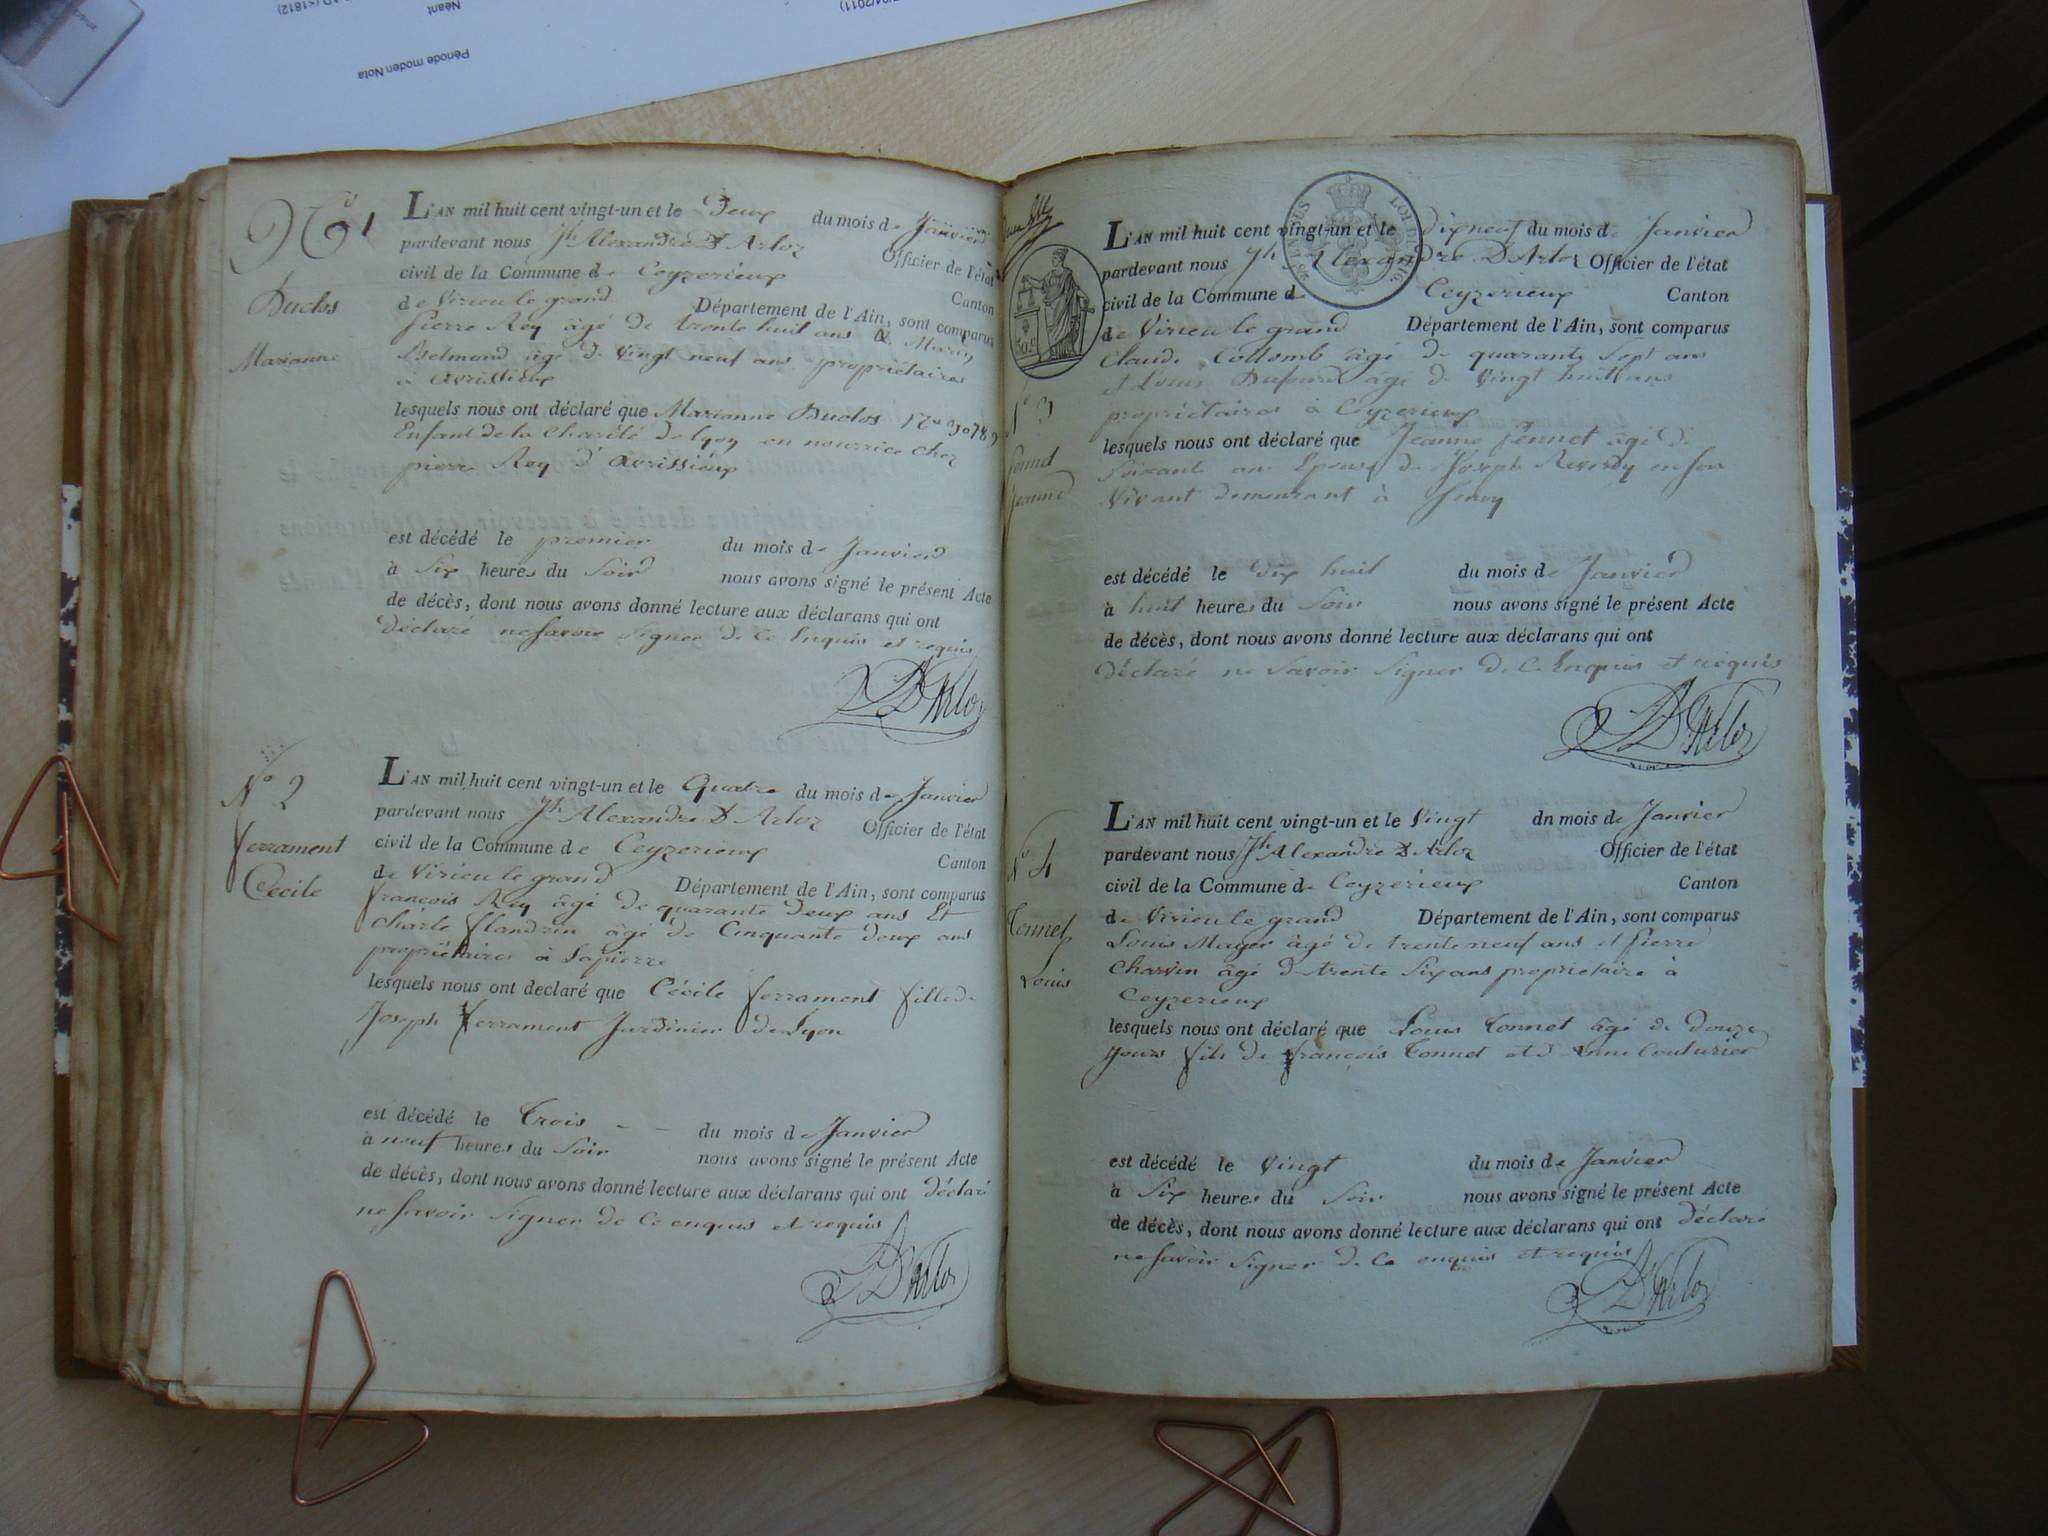 Période moden Nota
Néant
N° 1
Duclos
Marianne
L'AN mil huit cent vingt-un et le Deux du mois de Janvier
pardevant nous Jh Alexandre D'Arloz Officier de l'état
civil de la Commune de Ceyzerieux Canton
de Virieu le grand Département de l'Ain, sont comparus
pierre Rey âgé de trente huit ans & Marin
Belmond âgé de vingt neuf ans propriétaires
à avrissieux
lesquels nous ont déclaré que Marianne Duclos
Enfant de la Charité de lyon en nourrice chez
pierre Rey d'avrissieux
est décédé le premier du mois de Janvier
à Six heures du Soir nous avons signé le présent Acte
de décès, dont nous avons donné lecture aux déclarans qui ont
déclaré ne Savoir Signer de Ce Enquis et requis
D'Arloz
N° 2
ferrament
Cécile
L'AN mil huit cent vingt-un et le Quatre du mois de Janvier
pardevant nous Jh Alexandre D'Arloz Officier de l'état
civil de la Commune de Ceyzerieux Canton
de Virieu le grand Département de l'Ain, sont comparus
françois Rey âgé de quarante Deux ans Et
Charle flandrin âgé de Cinquante deux ans
propriétaires à Lapierre
lesquels nous ont declaré que Cécile ferrament fille de
Joseph ferrament Jardinier de Lyon
est décédé le Trois du mois de Janvier
à neuf heures du Soir nous avons signé le présent Acte
de décès, dont nous avons donné lecture aux déclarans qui ont déclaré
ne Savoir Signer de Ce enquis et requis
D'Arloz
N° 3
Jeanne
L'AN mil huit cent vingt-un et le dix neuf du mois de Janvier
pardevant nous Jh Alexandre D'Arloz Officier de l'état
civil de la Commune d Ceyzerieux Canton
de Virieu le grand Département de l'Ain, sont comparus
Claude Collomb âgé de quarante Sept ans
et Louis âgé de Vingt huit ans
propriétaires à Ceyzerieux
lesquels nous ont déclaré que Jeanne âgé de
Soixante ans Epouse de Joseph en Son
Vivant demeurant à
est décédé le dix huit du mois de Janvier
à huit heures du Soir nous avons signé le présent Acte
de décès, dont nous avons donné lecture aux déclarans qui ont
Déclaré ne Savoir Signer de Ce Enquis et requis
D'Arloz
N° 4
Tonnet
Louis
L'AN mil huit cent vingt-un et le Vingt dn mois de Janvier
pardevant nous Jh Alexandre D'Arloz Officier de l'état
civil de la Commune de Ceyzerieux Canton
de Virieu le grand Département de l'Ain, sont comparus
Louis Mager âgé de trente neuf ans et pierre
Charvin âgé de trente Six ans propriétaire à
Ceyzerieux
lesquels nous ont déclaré que Louis Tonnet âgé de douze
Jours fils de françois Tonnet et d'Anne Couturier
est décédé le Vingt du mois de Janvier
à Six heures du Soir nous avons signé le présent Acte
de décès, dont nous avons donné lecture aux déclarans qui ont déclaré
ne Savoir Signer de Ce enquis et requis
D'Arloz